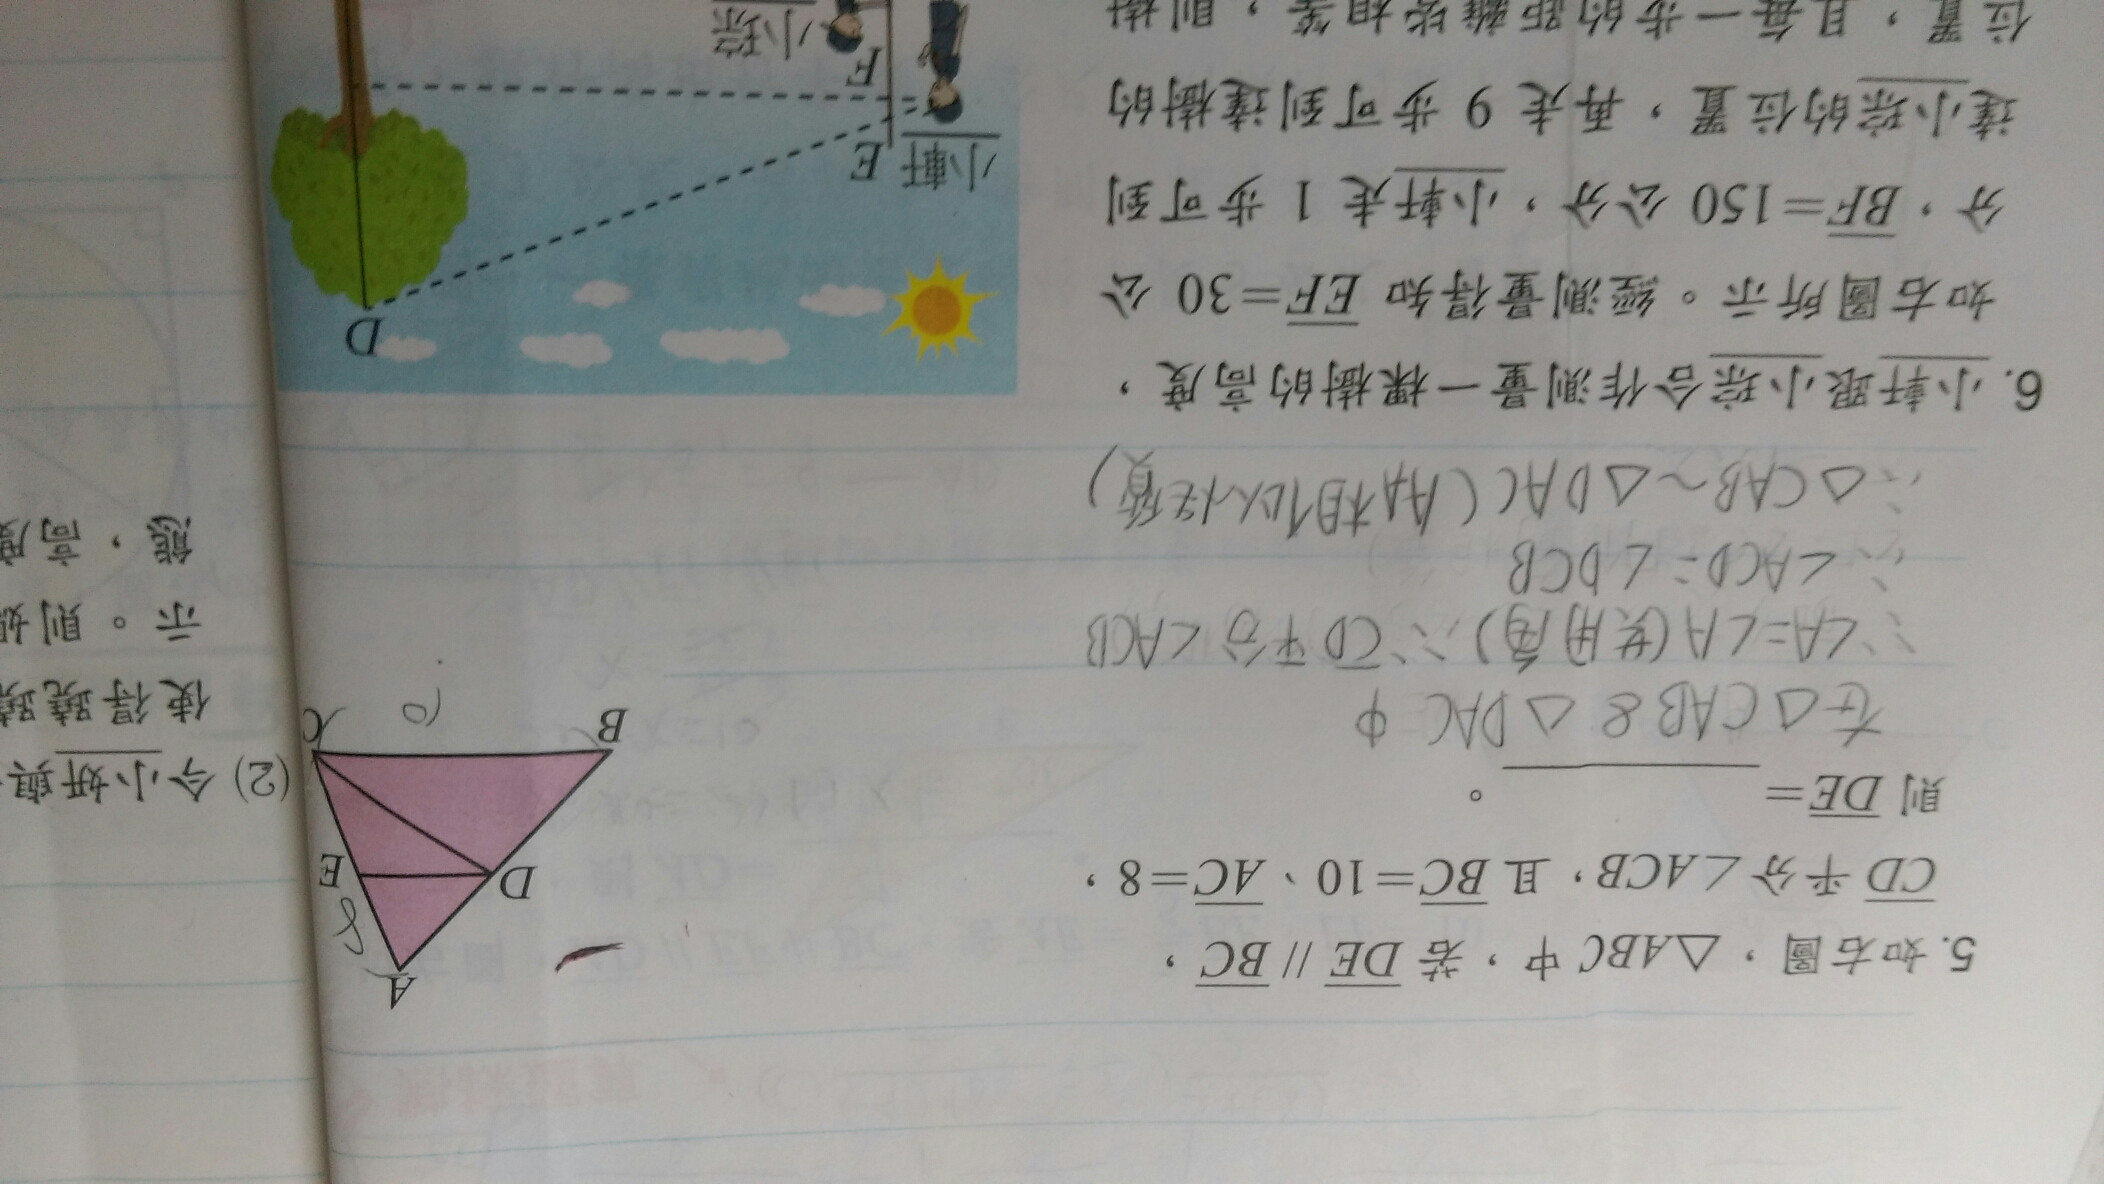 5. 如右圖，△ABC 中，若 DE // BC，
CD 平分∠ACB，且 BC=10、AC=8，
則 DE=＿＿＿＿。
A
8
D
E
B
C
10
在△CAB & △DAC 中
∵∠A=∠A (共用角) ∵CD平分∠ACB
∴∠ACD=∠DCB
∴△CAB~△DAC (AA相似性質)
6. 小軒跟小琮合作測量一棵樹的高度，
如右圖所示。經測量得知 EF=30 公
分，BF=150 公分，小軒走 1 步可到
達小琮的位置，再走 9 步可到達樹的
位置，且每一步的距離皆相等，則樹
D
小軒
E
F
小琮
(2) 令小妍與
使得蹺蹺
示。則
態，高度